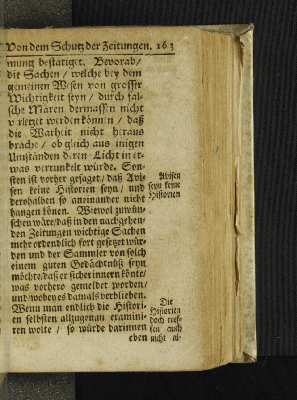 Von dem Schutz der Zeitungen. 163
mung bestätiget. Bevorab/
die Sachen / welche bey dem
gemeinen Wesen von grosser
Wichtigkeit seyn / durch fal-
sche Maren dermassen nicht
verletzet werden können / daß
die Warheit nicht heraus
bräche / ob gleich aus einigen
Umständen deren Licht in et-
was vertunkelt würde. Son-
sten ist vorher gesaget / daß Avi-
sen keine Historien seyn / und
derohalben so aneinander nicht
hangen können. Wiewol zuwün-
schen wäre/ daß in den nachgehen-
den Zeitungen wichtige Sachen
mehr ordendlich fort gesetzet wür-
den und der Sammler von solch
einem guten Gedächtnüß seyn
möchte/ daß er sich erinnern könte/
was vorhero gemeldet worden/
und wobey es damals verblieben.
Wenn man endlich die Histori-
en selbsten allzugenau examini-
ren wolte / so würde darinnen
eben
Avisen
seyn keine
Historien
Die
Historien
doch tref-
fen auch
nicht al-